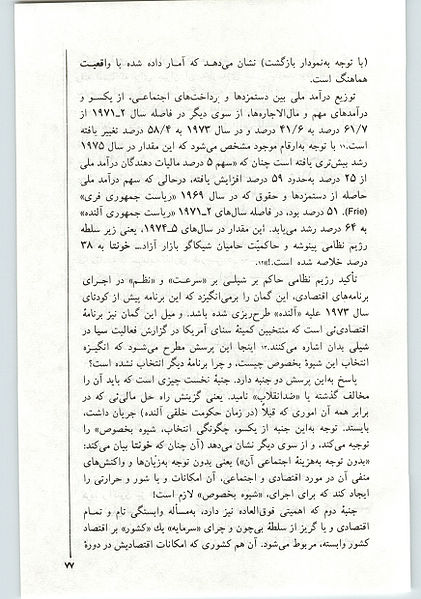 (با توجه به‌نمودار بازگشت) نشان می‌دهد که آمار داده شده با واقعیت
هماهنگ است.
توزیع درآمد ملی بین دستمزدها و پرداخت‌های اجتماعی، از یکسو و
درآمدهای مهم و مال‌الاجاره‌ها، از سوی دیگر در فاصله سال ۲ـ۱۹۷۱ از
۶۱/۷ درصد به ۴۱/۶ درصد و در سال ۱۹۷۳ به ۵۸/۴ درصد تغییر یافته
است.۱۱ با توجه به‌ارقام موجود مشخص می‌شود که این مقدار در سال ۱۹۷۵
رشد بیش‌تری یافته است چنان که «سهم ۵ درصد مالیات دهندگان درآمد ملی
از ۲۵ درصد به‌حدود ۵۹ درصد افزایش یافته، درحالی که سهم درآمد ملی
حاصله از دستمزدها و حقوق که در سال ۱۹۶۹ «ریاست جمهوری فری»
(Frie)، ۵۱ درصد بود، در فاصله سال‌های ۲ـ۱۹۷۱ «ریاست جمهوری آلنده»
به ۶۴ درصد رشد می‌یابد. این مقدار در سال‌های ۵ـ۱۹۷۴، یعنی زیر سلطه
رژیم نظامی پینوشه و حاکمیّت حامیان شیکاگو بازار آزاد... خونتا به ۳۸
درصد خلاصه شده است.!»۱۲
تأکید رژیم نظامی حاکم بر شیلی بر «سرعت» و «نظم» در اجرای
برنامه‌های اقتصادی، این گمان را برمی‌انگیزد که این برنامه پیش از کودتای
سال ۱۹۷۳ علیه «آلنده» طرح‌ریزی شده باشد. و میل این گمان نیز برنامهٔ
اقتصادی‌ئی است که منتخبین کمیتهٔ سنای آمریکا در گزارش فعالیت سیا در
شیلی بدان اشاره می‌کنند.۱۳ اینجا این پرسش مطرح می‌شود که انگیزه
انتخاب این شیوهٔ بخصوص چیست، و چرا برنامهٔ دیگر انتخاب نشده است؟
پاسخ به‌این پرسش دو جنبه دارد. جنبهٔ نخست چیزی است که باید آن را
مخالف گذشته یا «ضدانقلاب» نامید. یعنی گزینش راه حل مالی‌ئی که در
برابر همه آن اموری که قبلاً (در زمان حکومت خلقی آلنده) جریان داشت،
بایستد. توجه به‌این جنبه از یکسو، چگونگی انتخاب، شیوه بخصوص» را
توجیه می‌کند، و از سوی دیگر نشان می‌دهد (آن چنان که خونتا بیان می‌کند:
«بدون توجه به‌هزینهٔ اجتماعی آن») یعنی بدون توجه به‌زیان‌ها و واکنش‌های
منفی آن در مورد اقتصادی و اجتماعی، آن امکانات و یا شور و حرارتی را
ایجاد کند که برای اجرای، «شیوه بخصوص» لازم است!
جنبهٔ دوم که اهمیتی فوق‌العاده نیز دارد، به‌مسأله وابستگی تام و تمام
اقتصادی و یا گریز از سلطهٔ بی‌چون و چرای «سرمایه» یك «کشور» بر اقتصاد
کشور وابسته، مربوط می‌شود. آن هم کشوری که امکانات اقتصادیش در دورهٔ
۷۷